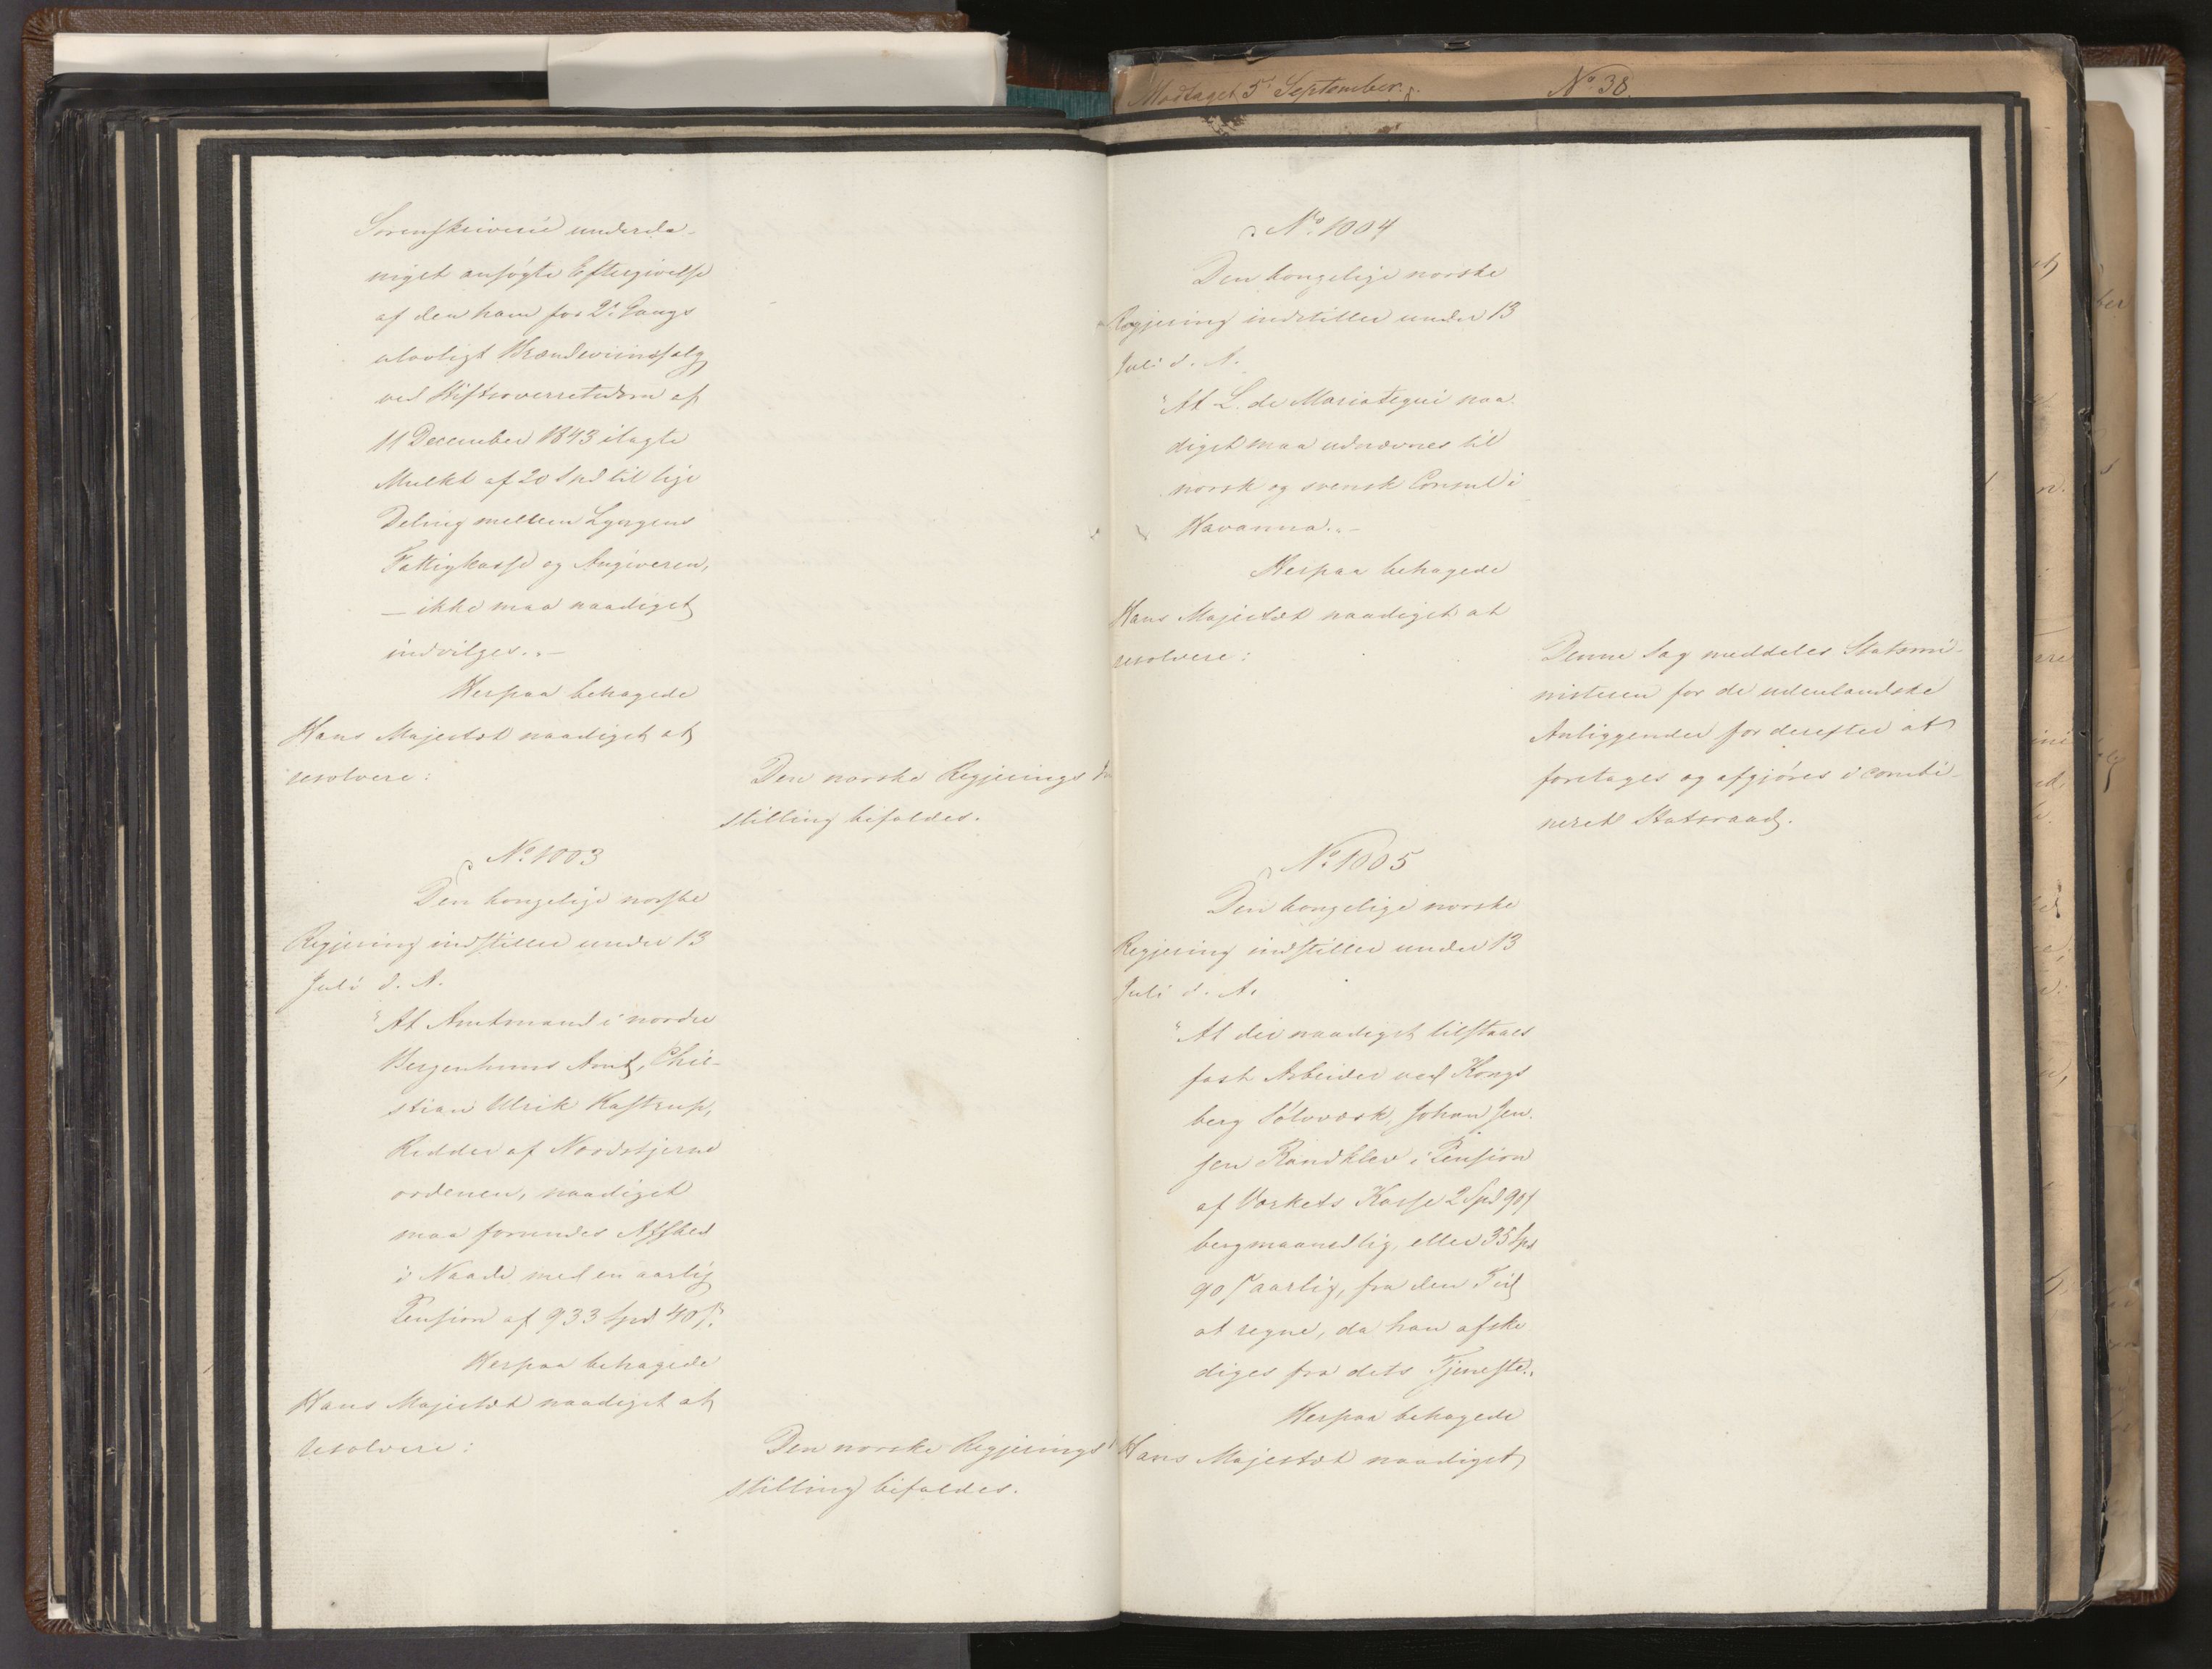 Sorenskriverie underda-
nigst ansøgte Eftergivelse
af den ham for 2den Gangs
ulovligt Brændeviinssalg
ved Stiftsoverretsdom af
11 December 1843 ilagte
Mulkt af 20 Spd til lige
Deling mellem Lyngens
Fattigkasse og Angiveren,
– ikke maa naadigst
indvilges." –
Herpaa behagede
Hans Majestæt naadigst at
resolvere:
Den norske Regjerings Ind
stilling bifaldes.
No. 1003
Den kongelige norske
Regjering indstiller under 13
Juli d. A.
"At Amtmand i nordre
Bergenhuus Amt, Chri-
stian Ulrik Kastrup,
Ridder af Nordstjerne
ordenen, naadigst
maa forundes Afsked
i Naade med en aarlig
Pension af 933 Spd 40 ß."
Herpaa behagede
Hans Majestæt naadigst at
resolvere:
Den norske Regjerings
stilling bifaldes.
Modtaget 5t September.
No. 38.
No. 1004
Den kongelige norske
Regjering indstiller under 13
Juli d. A.
"At L. de Mariategui naa
digst maa udnævnes til
norsk og svensk Consul i
Havanna." –
Herpaa behagede
Hans Majestæt naadigst at
resolvere:
Denne Sag meddeles Statsmi-
nisteren for de udenlandske
Anliggender for derefter at
foretages og afgjøres i combi-
neret Statsraad.
No. 1005
Den kongelige norske
Regjering indstiller under 13
Juli d. A.
"At der naadigst tilstaaes
fast Arbeider ved Kongs
berg Sølvværk, Johan Jen
sen Randklev i Pension
af Værkets Kasse 2 Spd 90 ß
bergmaanedlig, eller 35 Spd
90 ß aarlig, fra den Tid
at regne, da han afske
diges fra dets Tjeneste."
Herpaa behagede
Hans Majestæt naadigst